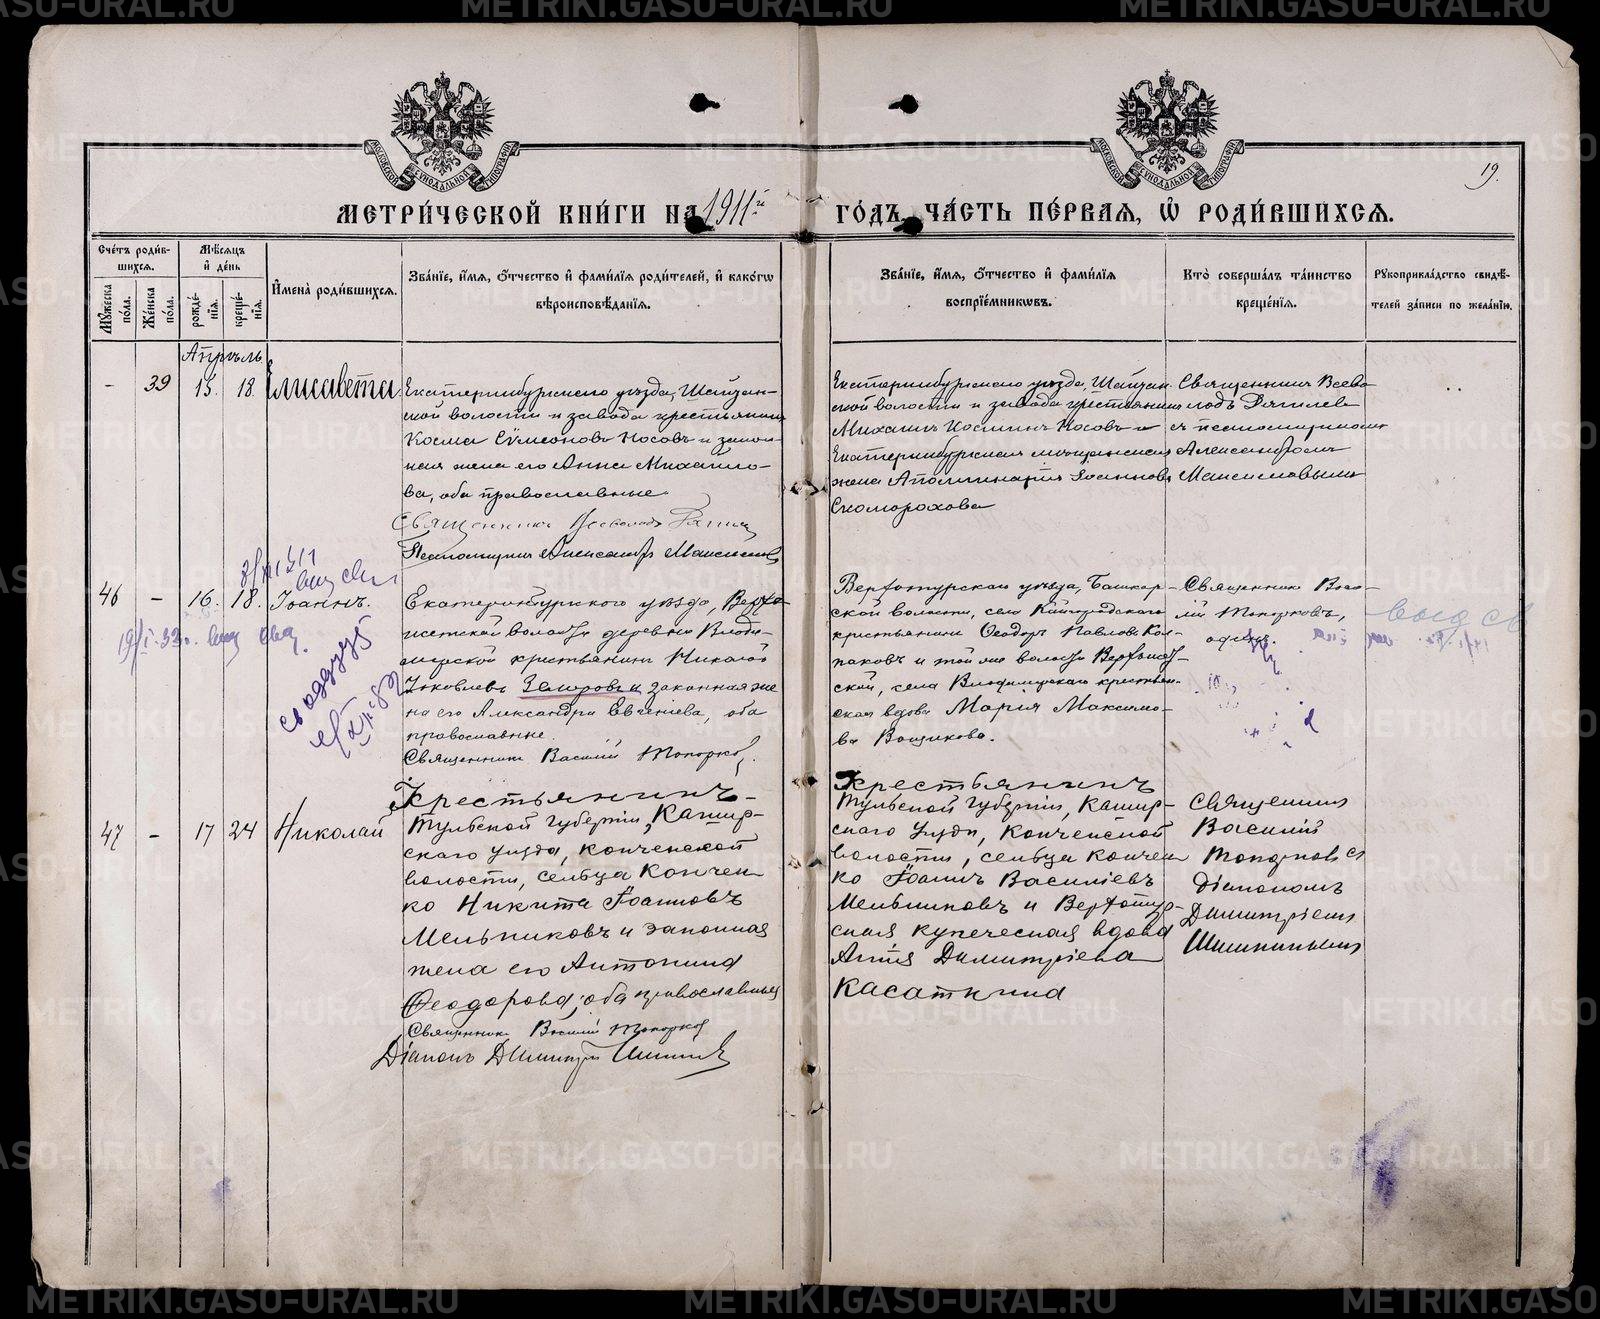 19.
МЕТРИ́ЧЕСКОЙ КНИ́ГИ НА 1911й ГО́ДЪ, ЧА́СТЬ ПЕ́РВАЯ, Ѡ҆ РОДИ́ВШИХСЯ.
Счётъ роди́в-
шихся.
Мѣ́сяцъ
и҆ де́нь
Мꙋ́жеска
по́ла.
Же́нска
по́ла.
рожде́-
нїѧ.
креще́-
нїѧ.
И҆мена̀ роди́вшихся.
Зва́нїе, и҆́мѧ, ѻ҆́тчество и҆ фами́лїѧ роди́телей, и҆ како́гѡ
вѣроисповѣ́данїѧ.
Зва́нїе, и҆́мѧ, ѻ҆́тчество и҆ фами́лїѧ
воспрїе́мниковъ.
Кто̀ соверша́лъ та́инство
креще́нїѧ.
Рꙋкоприкла́дство свидѣ́-
телей за́писи по жела́нїю.
Апрѣль
-
39
15.
18.
Елисавета.
Екатеринбургскаго уѣзда, Шайтан-
ской волости и завода крестьянинъ
Косма Сѵмеоновъ Носовъ и закон-
ная жена его Анна Михайло-
ва, оба православные.
Священникъ Всеволодъ
Псаломщикъ Александръ
Екатеринбургскаго уѣзда, Шайтан-
ской волости и завода крестьянинъ
Михаилъ Косминъ Носовъ и
Екатеринбургская мѣщанская
жена Аполлинарія Іоаннова
Скоморохова
Священникъ Всево-
лодъ
съ псаломщикомъ
Александромъ
46
-
16.
18.
Іоаннъ.
Екатеринбургскаго уѣзда, Верхъ-
исетской волости деревни Влади-
мірской крестьянинъ Николай
Іаковлевъ и законная же
на его Александра Евгеніева, оба
православные.
Священникъ Василій Топорковъ.
Верхотурскаго уѣзда, Башкар-
ской волости, села Кайгородскаго
крестьянинъ Ѳеодоръ Павловъ Кол-
паковъ и той же волости Верхъисет-
ской, села Владимірскаго крестьян-
ская вдова Марія Максимо-
ва
Священникъ Васи-
лій Топорковъ,
одинъ.
47
-
17
24
Николай
Крестьянинъ
Тульской губерніи, Кашир-
скаго уѣзда, Кончинской
волости, сельца Кончин
ко Никита Іоанновъ
Мельниковъ и законная
жена его Антонина
Ѳеодорова, оба православные
Священникъ Василій Топорковъ
Діаконъ Димитрій
Крестьянинъ
Тульской губерніи, Кашир-
скаго уѣзда, Кончинской
волости, сельца Кончин
ко Іоаннъ Василіевъ
Мельниковъ и Верхотур-
ская купеческая вдова
Анна Димитріева
Касаткина
Священникъ
Василій
Топорковъ съ
Діакономъ
Димитріемъ
Шишкинымъ
METRIKI.GASO-URAL.RU